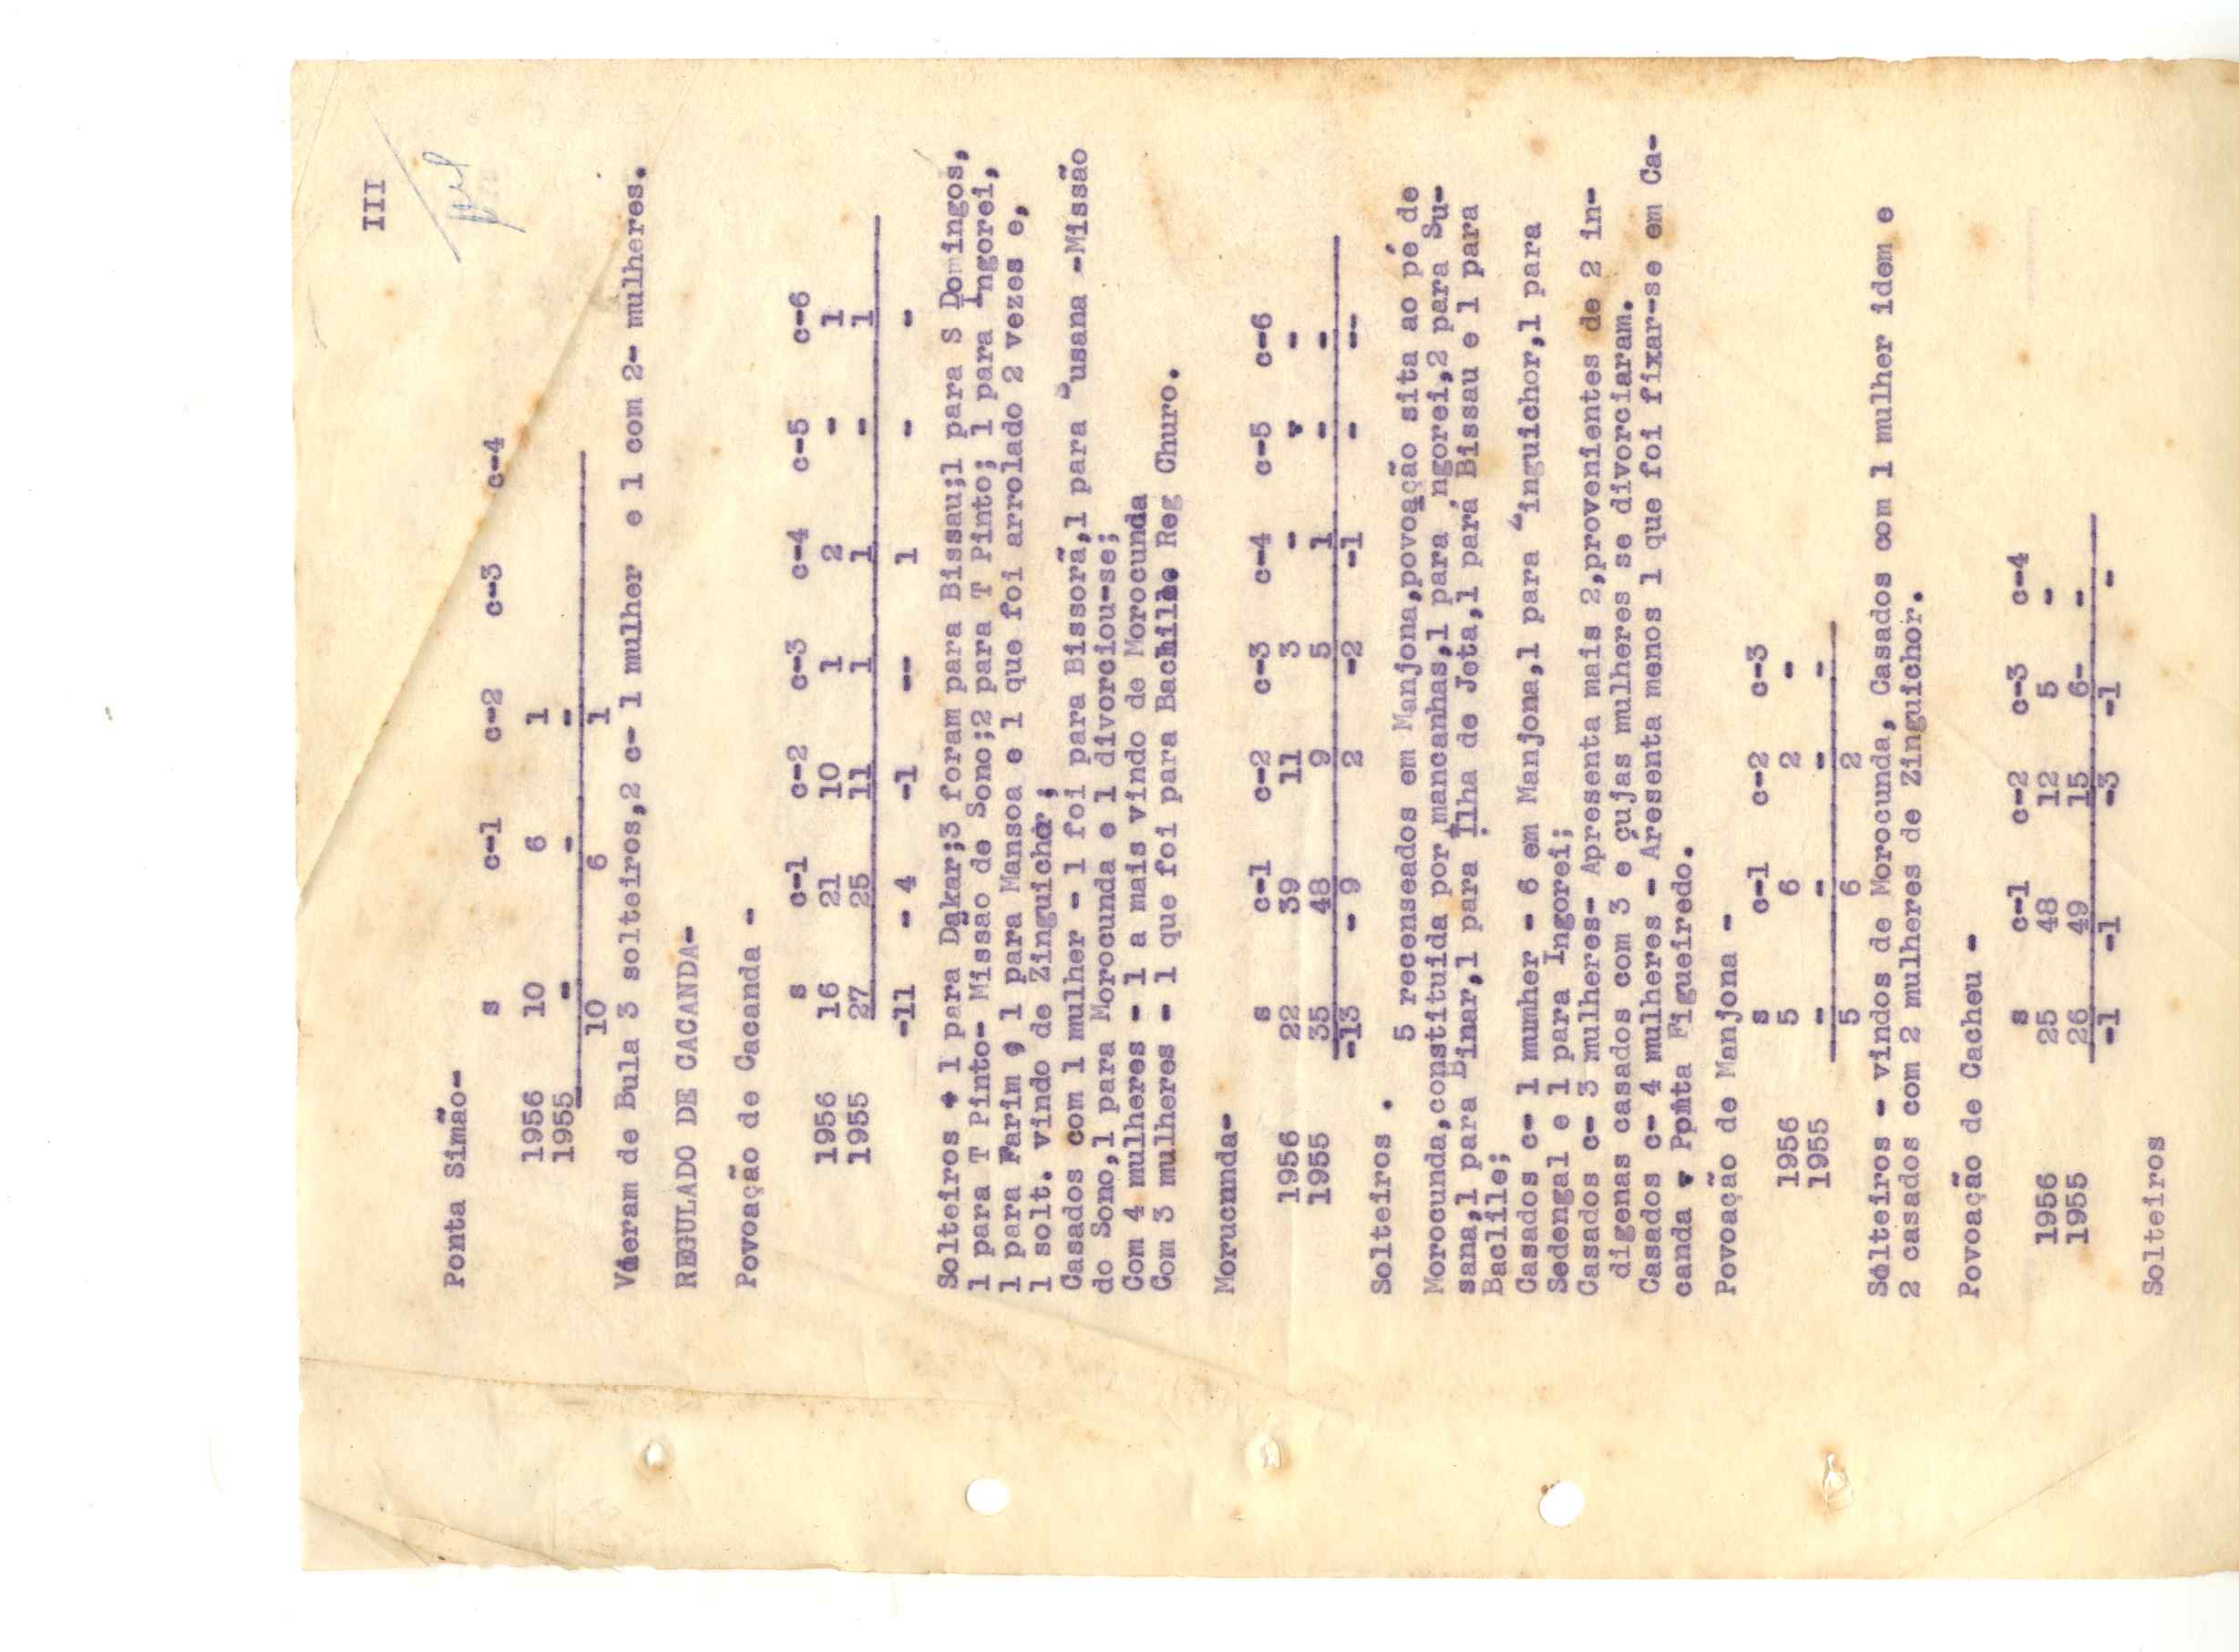 III
Ponta Simão-
s c-1 c-2 c-3 c-4
1956 10 6 1
1955 - - -
10 6 1
Vieram de Bula 3 solteiros,2 c- 1 mulher e 1 com 2- mulheres.
REGULADO DE CACANDA-
Povoação de Cacanda -
s c-1 c-2 c-3 c-4 c-5 c-6
1956 16 21 10 1 2 - 1
1955 27 25 11 1 1 - 1
-11 - 4 -1 -- 1 - -
Solteiros - 1 para Dakar;3 foram para Bissau;1 para S Domingos,
1 para T Pinto- Missao de Sono;2 para T Pinto; 1 para Ingorei,
1 para Farim , 1 para Mansoa e 1 que foi arrolado 2 vezes e,
1 solt. vindo de Zinguichor ;
Casados com 1 mulher - 1 foi para Bissorã,1 para Susana -Missão
do Sono,1 para Morocunda e 1 divorciou-se;
Com 4 mulheres - 1 a mais vindo de Morocunda
Com 3 mulheres - 1 que foi para Bachile Reg Churo.
Morucunda-
s c-1 c-2 c-3 c-4 c-5 c-6
1956 22 39 11 3 - - -
1955 35 48 9 5 1 - -
-13 - 9 2 -2 -1 - --
Solteiros .
5 recenseados em Manjona,povoação sita ao pé de
Morocunda,constituida por mancanhas,1 para Ingorei,2 para Su-
sana,1 para Binar,1 para Ilha de Jeta,1 para Bissau e 1 para
Baclile;
Casados c- 1 mumher - 6 em Manjona,1 para Zinguichor,1 para
Sedengal e 1 para Ingorei;
Casados c- 3 mulheres- Apresenta mais 2,provenientes de 2 in-
digenas casados com 3 e çujas mulheres se divorciaram.
Casados c- 4 mulheres - Aresenta menos 1 que foi fixar-se em Ca-
canda - Ponta Figueiredo.
Povoação de Manjona -
s c-1 c-2 c-3
1956 5 6 2 -
1955 - - - -
5 6 2
Sólteiros - vindos de Morocunda, Casados com 1 mulher idem e
2 casados com 2 mulheres de Zinguichor.
Povoação de Cacheu -
s c-1 c-2 c-3 c-4
1956 25 48 12 5 -
1955 26 49 15 6- -
-1 -1 -3 -1 -
Solteiros